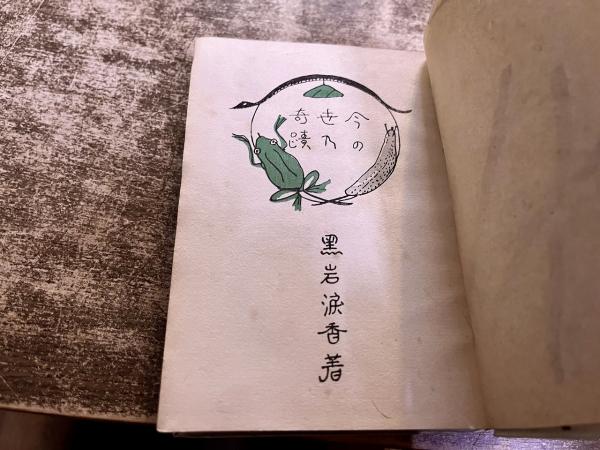 今の
世乃
奇蹟
黒岩涙香著